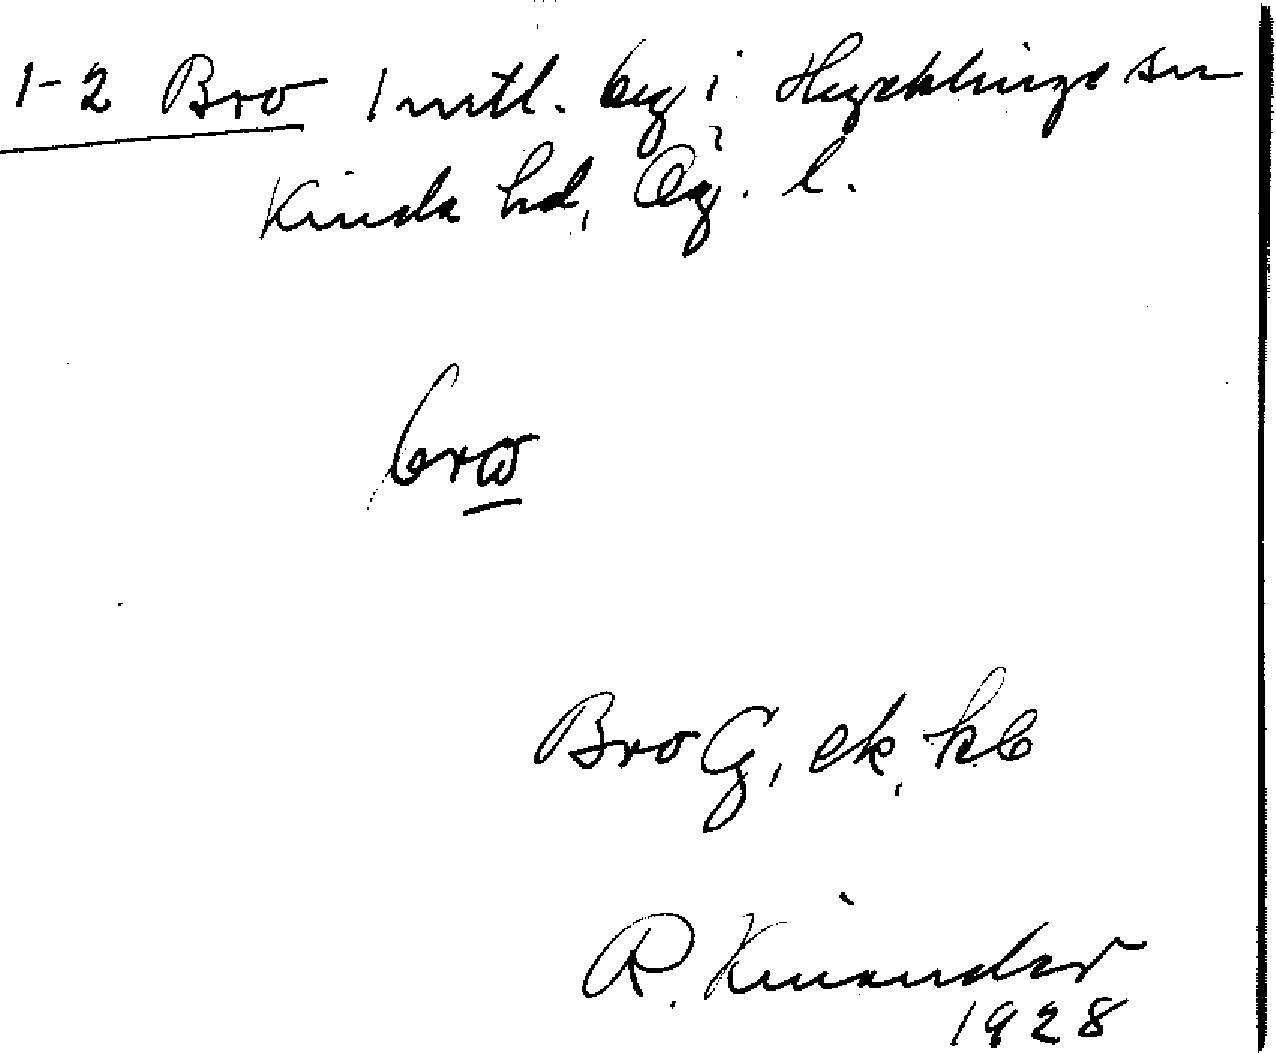 1-2 Bro 1 mtl. by i Hycklinge sn
Kinda hd, Ög. l.
brω
Bro G, ek, kb
R. Kinander
1928